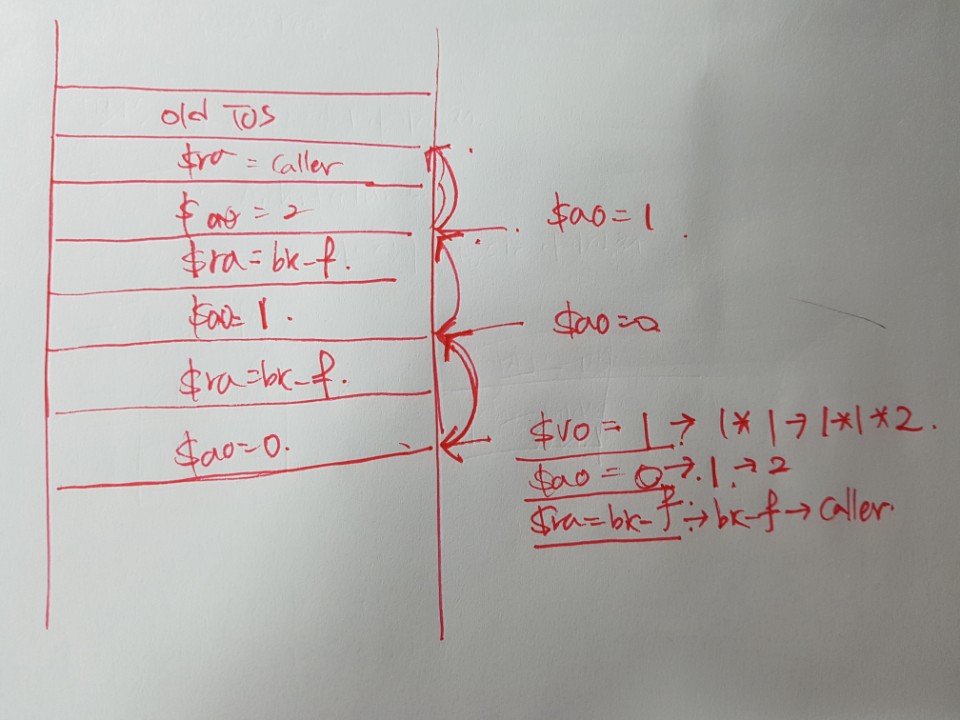 old TOS
$ra = caller
$a0 = 2
$ra = bk-f.
$a0 = 1.
$ra = bk-f.
$a0 = 0.
$a0 = 1.
$a0 = 0
$v0 = 1 → 1*1 → 1*1*2.
$a0 = 0 → 1. → 2
$ra = bk-f → bk-f → caller.